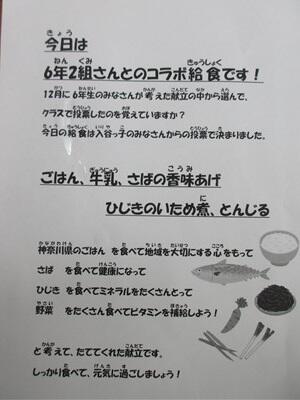 今日は
6年2組さんとのコラボ給食です！
12月に6年生のみなさんが考えた献立の中から選んで、
クラスで投票したのを覚えていますか？
今日の給食は入谷っ子のみなさんからの投票で決まりました。
ごはん、牛乳、さばの香味あげ
ひじきのいため煮、とんじる
神奈川県のごはん を食べて地域を大切にする心をもって
さば を食べて健康になって
ひじき を食べてミネラルをたくさんとって
野菜 をたくさん食べてビタミンを補給しよう！
と考えて、たててくれた献立です。
しっかり食べて、元気に過ごしましょう！